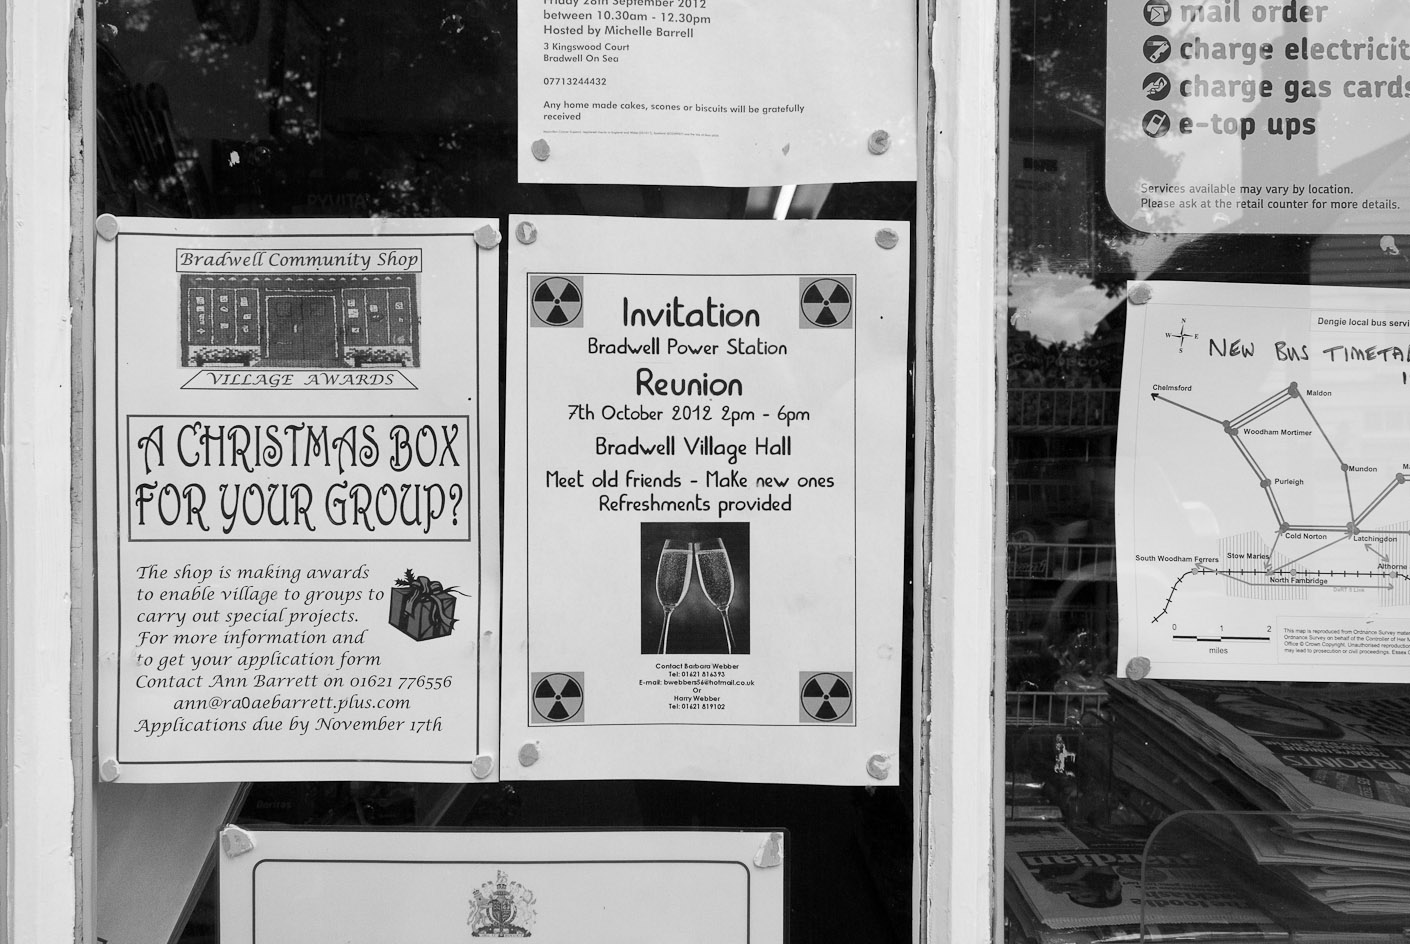 Friday 28th September 2012
between 10.30am - 12.30pm
Hosted by Michelle Barrell
3 Kingswood Court
Bradwell On Sea
07713244432
Any home made cakes, scones or biscuits will be gratefully
received
mail order
charge electricit
charge gas cards
e-top ups
Services available may vary by location.
Please ask at the retail counter for more details.
Bradwell Community Shop
VILLAGE AWARDS
A CHRISTMAS BOX
FOR YOUR GROUP?
The shop is making awards
to enable village to groups to
carry out special projects.
For more information and
to get your application form
Contact Ann Barrett on 01621 776556
ann@ra0aebarrett.plus.com
Applications due by November 17th
Invitation
Bradwell Power Station
Reunion
7th October 2012 2pm - 6pm
Bradwell Village Hall
Meet old friends - Make new ones
Refreshments provided
Contact Barbara Webber
Tel: 01621 816393
E-mail: bwebber56@hotmail.co.uk
Or
Harry Webber
Tel: 01621 819102
Dengie local bus servi
N
W E
S
NEW BUS TIMETA
Chelmsford
Maldon
Woodham Mortimer
Mundon
Purleigh
Cold Norton
Latchingdon
South Woodham Ferrers
Stow Maries
Althorne
North Fambridge
0 1 2
miles
This map is reproduced from Ordnance Survey mater
Ordnance Survey on behalf of the Controller of Her M
Office © Crown Copyright. Unauthorised reproduction
may lead to prosecution or civil proceedings. Essex